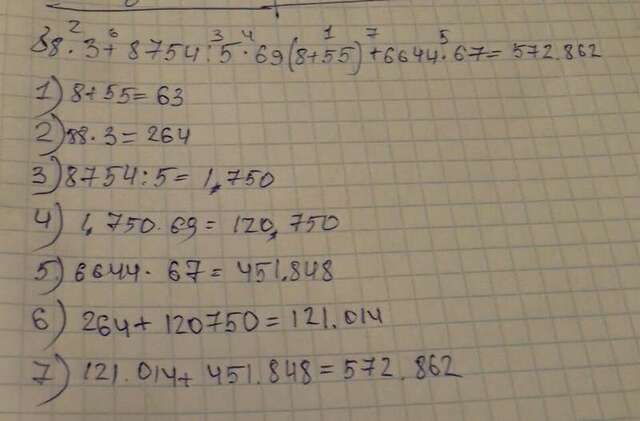 88 · 3 + 8754 : 5 · 69 (8 + 55) + 6644 · 67 = 572.862
1) 8 + 55 = 63
2) 88 · 3 = 264
3) 8754 : 5 = 1,750
4) 1,750 · 69 = 120,750
5) 6644 · 67 = 451.848
6) 264 + 120750 = 121.014
7) 121.014 + 451.848 = 572.862